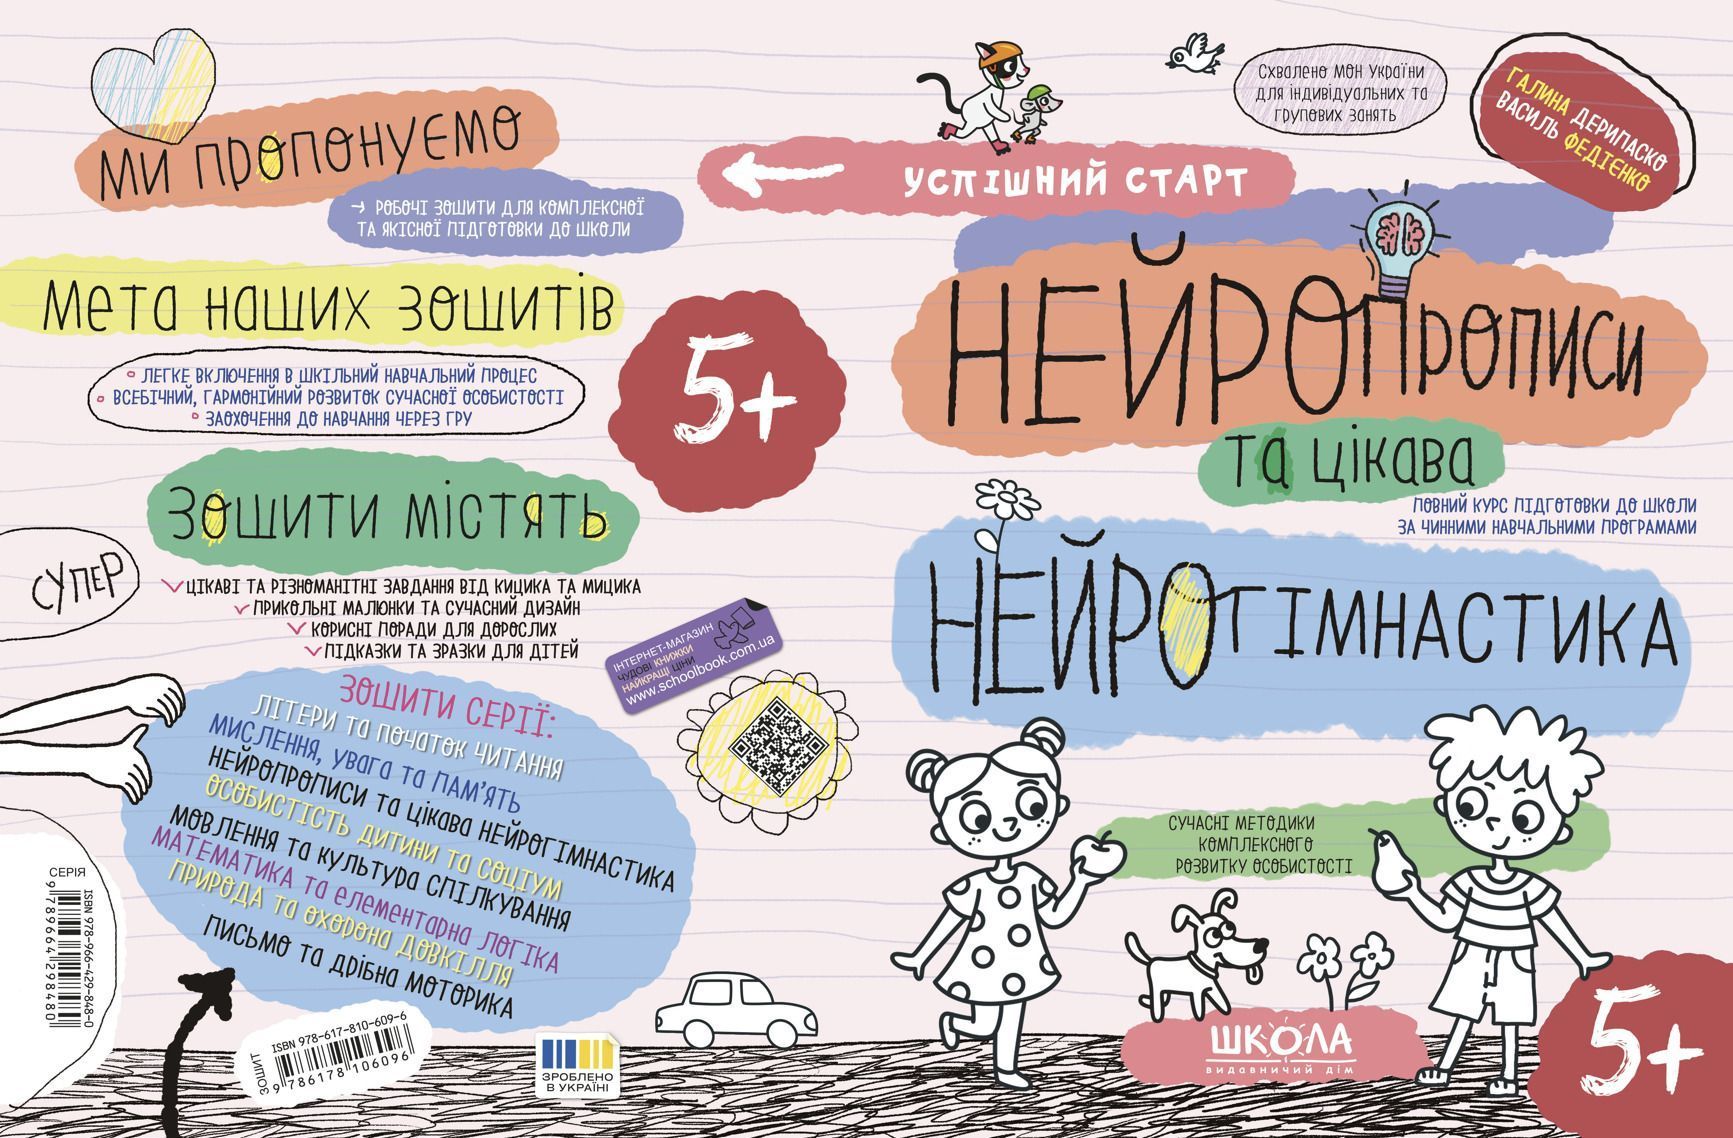 Ми пропонуємо
→ робочі зошити для комплексної
та якісної підготовки до школи
Мета наших зошитів
легке включення в шкільний навчальний процес
всебічний, гармонійний розвиток сучасної особистості
заохочення до навчання через гру
5+
Зошити містять
супер
цікаві та різноманітні завдання від Кицика та Мицика
прикольні малюнки та сучасний дизайн
корисні поради для дорослих
підказки та зразки для дітей
ІНТЕРНЕТ-МАГАЗИН
ЧУДОВІ КНИЖКИ
НАЙКРАЩІ ЦІНИ
www.schoolbook.com.ua
Зошити серії:
Літери та початок читання
Мислення, увага та пам'ять
Нейропрописи та цікава нейрогімнастика
Особистість дитини та соціум
Мовлення та культура спілкування
Математика та елементарна логіка
Природа та охорона довкілля
Письмо та дрібна моторика
СЕРІЯ
ISBN 978-966-429-848-0
9 789664 298480
ЗОШИТ
ISBN 978-617-810-609-6
9 786178 106096
ЗРОБЛЕНО
В УКРАЇНІ
Схвалено МОН України
для індивідуальних та
групових занять
ГАЛИНА ДЕРИПАСКО
ВАСИЛЬ ФЕДІЄНКО
УСПІШНИЙ СТАРТ
НЕЙРОпрописи
та цікава
повний курс підготовки до школи
за чинними навчальними програмами
НЕЙРОГІМНАСТИКА
сучасні методики
комплексного
розвитку особистості
ШКОЛА
видавничий дім
5+